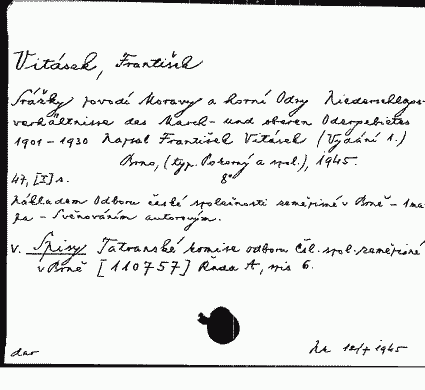 Vitásek, František
Srážky povodí Moravy a horní Odry Niederschlags-
verhältnisse des March- und oberen Odergebietes
1901-1930 Napsal František Vitásek (Vydání 1.)
Brno, (typ. Pokorný a spol.), 1945.
47, [I] s. 8°
Nákladem Odboru české společnosti zeměpisné v Brně - 1 ma-
pa - S věnováním autorovým.
v. Spisy Tatranské komise odboru Čsl. spol. zeměpisné
v Brně [110757] Řada A, spis 6.
dar 12/7 1945